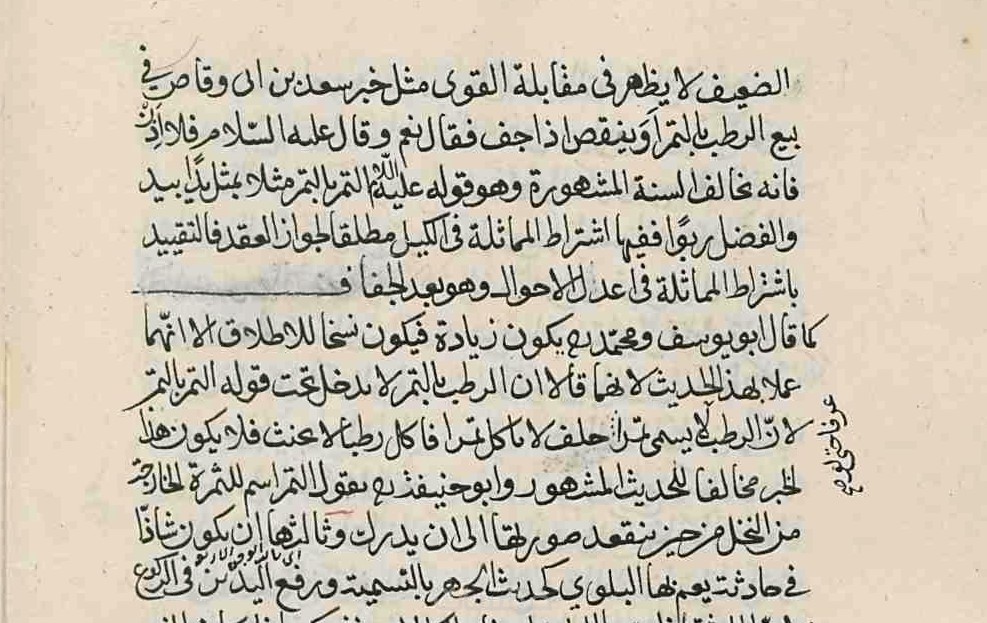 الضعيف لا يظهر في مقابلة القوى مثل خبر سعد بن ابى وقاص في
بيع الرطب بالتمر اَوَ ينقص اذا جف فقال نعم وقال عليه السّلام فلا اِذَنْ
فانه مخالف السنة المشهورة وهو قوله عليه السلم التمر بالتمر مثلا بمثل يدًا بيد
والفضل ربوًا ففيها اشتراط المماثلة فى الكيل مطلقا لجواز العقد فالتقييد
باشتراط المماثلة فى اعدل الاحوال وهو بعد الجفاف
كما قال ابو يوسف ومحمّد رح يكون زيادة فيكون نسخا للاطلاق الا انّهما
عملا بهذ الحديث لانهما قالا ان الرطب بالتمر لا يدخل تحت قوله التمر بالتمر
لانّ الرطب لا يسمى تمرا حلف لا ياكل تمرا فاكل رطبا لا يحنث فلا يكون هذا
الخبر مخالفا للحديث المشهور وابو حنيفة رح يقول التمر اسم للثمرة الخارجة
من النخل من حين ينقعد صورتها الى ان يدرك وثالثها ان يكون شاذّا
في حادثة يعم بها البلوي كحديث الجهر بالتسمية ورفع اليدين فى الركوع
عرفا حتى لو